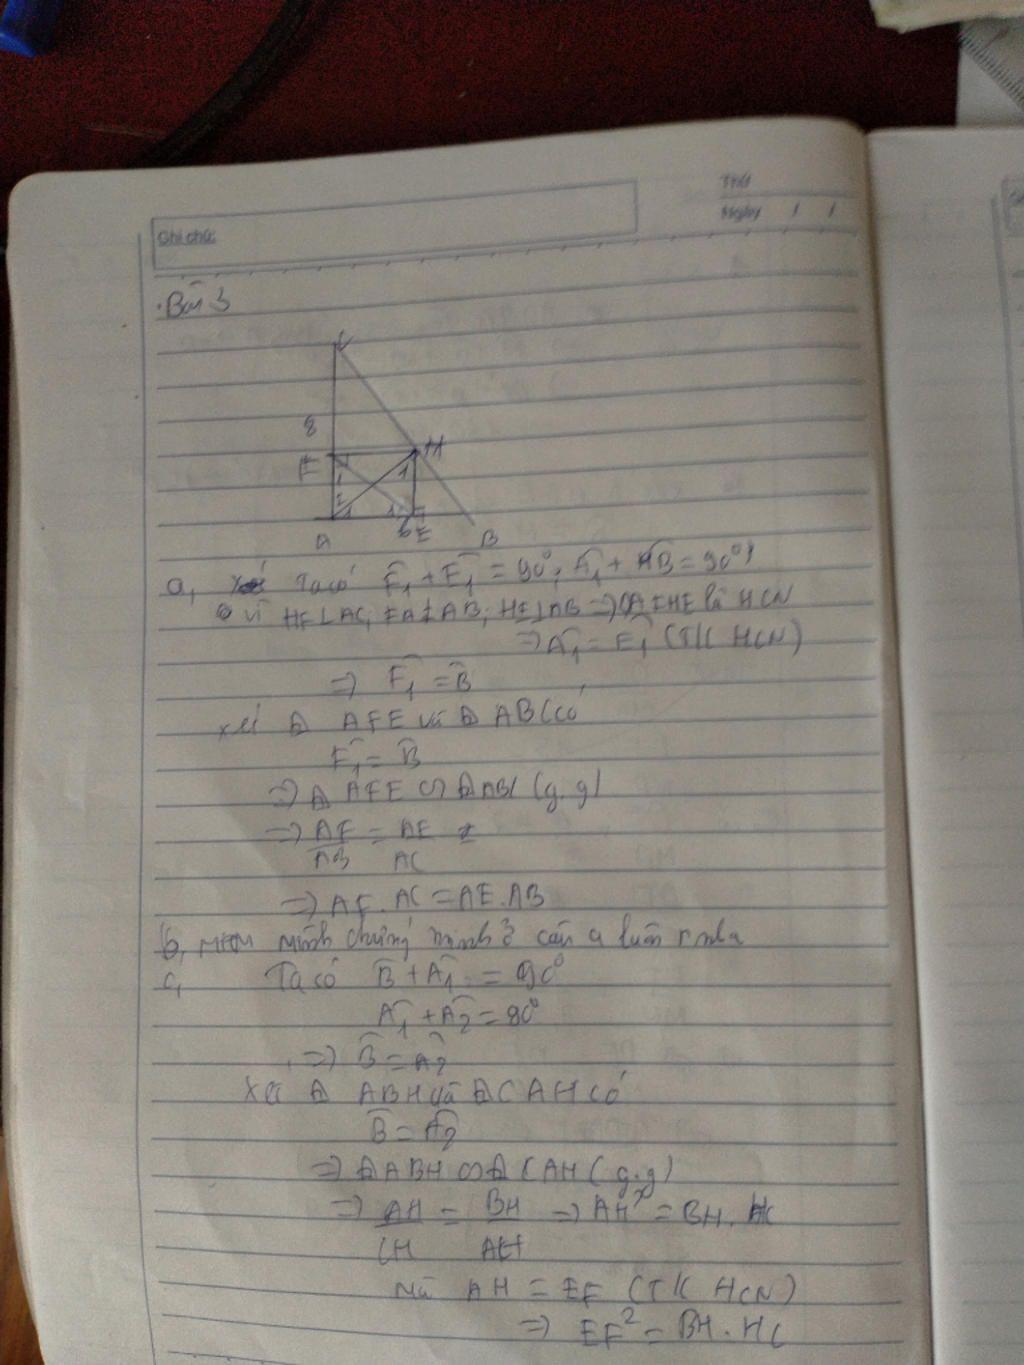 Thứ
Ngày / /
Ghi chú:
Bài 3
C
8
F
H
1
1
2
1
1
6
A
E
B
a, Ta có F₁ + E₁ = 90°, A₁ + B = 90°
Vì HF⊥AC, FA⊥AB, HE⊥AB => AFHE là HCN
=> A₁ = E₁ (T/C HCN)
=> F₁ = B
Xét Δ AFE và Δ ABC có
F₁ = B
=> Δ AFE ∽ Δ ABC (g.g)
=> AF/AB = AE/AC
=> AF.AC = AE.AB
b, Mình chứng minh ở câu a luôn
c, Ta có B + A₁ = 90°
A₁ + A₂ = 90°
=> B = A₂
Xét Δ ABH và Δ CAH có
B = A₂
=> Δ ABH ∽ Δ CAH (g.g)
=> AH/CH = BH/AH => AH² = BH.HC
Mà AH = EF (T/C HCN)
=> EF² = BH.HC